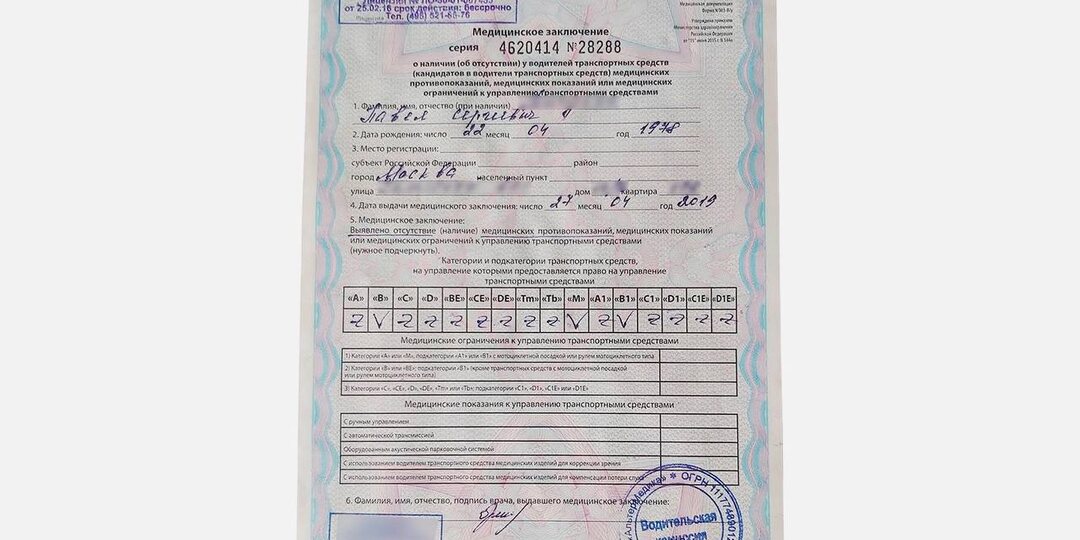 от 25.02.16 срок действия: бессрочно
Тел. (495) 521-65-76
Медицинская документация
Форма N 003-В/у
Утверждена приказом
Министерства здравоохранения
Российской Федерации
от "15" июня 2015 г. N 344н
Медицинское заключение
серия 4620414 №28288
о наличии (об отсутствии) у водителей транспортных средств
(кандидатов в водители транспортных средств) медицинских
противопоказаний, медицинских показаний или медицинских
ограничений к управлению транспортными средствами
1. Фамилия, имя, отчество (при наличии)
Павел Сергеевич
2. Дата рождения: число 22 месяц 04 год 1978
3. Место регистрации:
субъект Российской Федерации район
город Москва населенный пункт
улица дом квартира
4. Дата выдачи медицинского заключения: число 27 месяц 04 год 2019
5. Медицинское заключение:
Выявлено отсутствие (наличие) медицинских противопоказаний, медицинских показаний
или медицинских ограничений к управлению транспортными средствами
(нужное подчеркнуть).
Категории и подкатегории транспортных средств,
на управление которыми предоставляется право на управление
транспортными средствами
«A» «B» «C» «D» «BE» «CE» «DE» «Tm» «Tb» «M» «A1» «B1» «C1» «D1» «C1E» «D1E»
Z V Z Z Z Z Z Z Z V Z V Z Z Z Z
Медицинские ограничения к управлению транспортными средствами
1) Категории «A» или «M», подкатегории «A1» или «B1» с мотоциклетной посадкой или рулем мотоциклетного типа
2) Категории «B» или «BE», подкатегории «B1» (кроме транспортных средств с мотоциклетной посадкой
или рулем мотоциклетного типа)
3) Категории «C», «CE», «D», «DE», «Tm» или «Tb», подкатегории «C1», «D1», «C1E» или «D1E»
Медицинские показания к управлению транспортными средствами
С ручным управлением
С автоматической трансмиссией
Оборудованным акустической парковочной системой
С использованием водителем транспортного средства медицинских изделий для коррекции зрения
С использованием водителем транспортного средства медицинских изделий для компенсации потери слуха
6. Фамилия, имя, отчество, подпись врача, выдавшего медицинское заключение
«АльтерМедика» * ОГРН
Водительская
комиссия